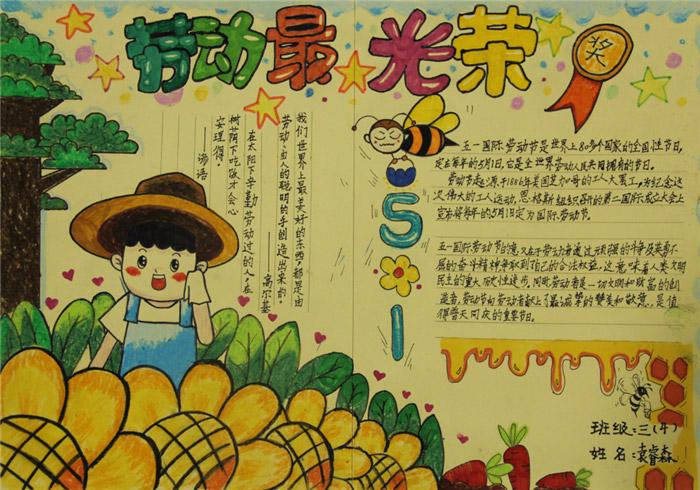 劳动最光荣
奖
我们世界上最美好的东西,都是由
劳动、由人的聪明的手创造出来的。
——高尔基
在太阳下辛勤劳动过的人,在
树荫下吃饭才会心
安理得。
——谚语
5
1
五一国际劳动节是世界上80多个国家的全国性节日,
定在每年的5月1日。它是全世界劳动人民共同拥有的节日。
劳动节起源于1886年美国芝加哥的工人大罢工,为纪念这
次伟大的工人运动,恩格斯组织召开的第二国际成立大会上
宣布将每年的5月1日定为国际劳动节。
五一国际劳动节的意义在于劳动者通过顽强的斗争及英勇不
屈的奋斗精神争取到自己的合法权益,这意味着人类文明
民主的重大历史性进步,同时劳动者是一切文明和财富的创
造者,劳动节向劳动者献上了最诚挚的赞美和敬意,是值
得普天同庆的重要节日。
班级:三(4)
姓名:袁睿森